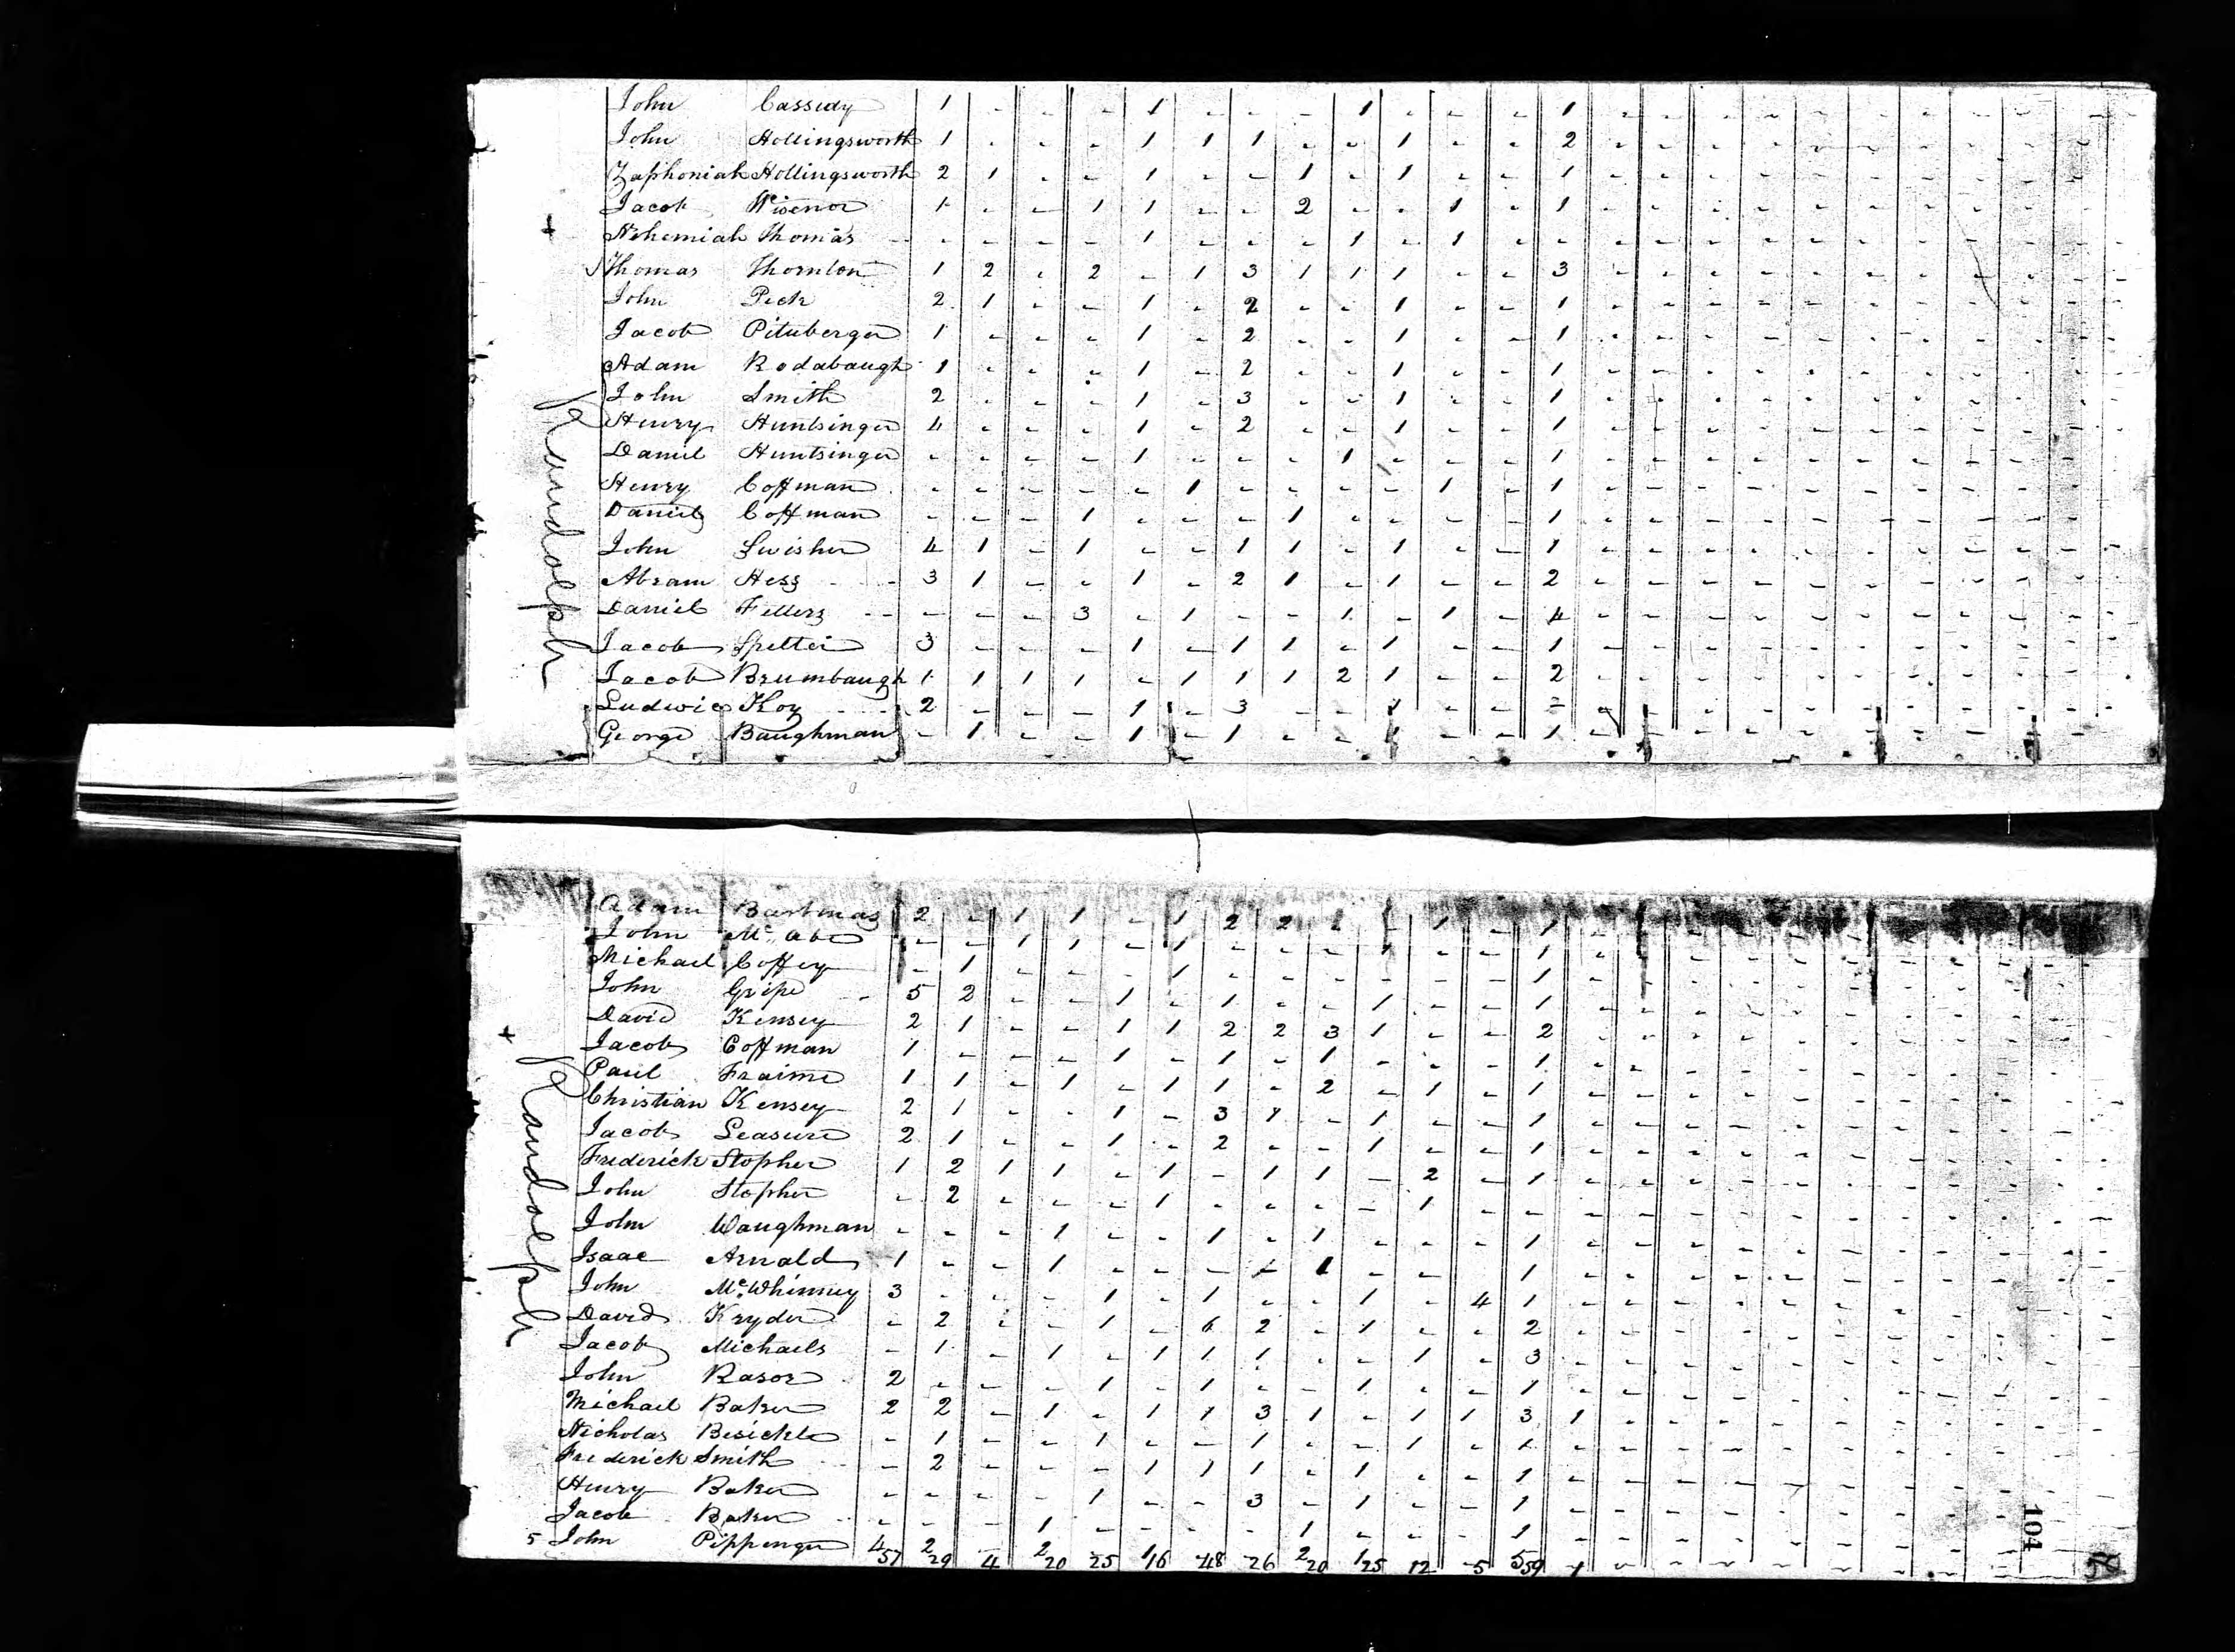 John Cassidy 1 - - - 1 - - - 1 - - - 1 - - - - - - - - - -
John Hollingsworth 1 - - - 1 1 1 - - 1 - - 2 - - - - - - - - - -
Zaphoniah Hollingsworth 2 1 - - 1 - - 1 - 1 - - 1 - - - - - - - - - -
Jacob Wisenor 1 - - 1 1 - - 2 - - 1 - 1 - - - - - - - - - -
Nehemiah Thomas - - - - 1 - - - 1 - 1 - - - - - - - - - - - -
Thomas Thornton 1 2 - 2 - 1 3 1 1 1 - - 3 - - - - - - - - - -
John Peck 2 1 - - 1 - 2 - - 1 - - 1 - - - - - - - - - -
Jacob 1 - - - 1 - 2 - - 1 - - 1 - - - - - - - - - -
Adam Rodabaugh 1 - - - 1 - 2 - - 1 - - 1 - - - - - - - - - -
John Smith 2 - - - 1 - 3 - - 1 - - 1 - - - - - - - - - -
Henry Huntsinger 4 - - - 1 - 2 - - 1 - - 1 - - - - - - - - - -
Daniel Huntsinger - - - - 1 - - - 1 - - - 1 - - - - - - - - - -
Henry Coffman - - - - - 1 - - - - 1 - 1 - - - - - - - - - -
Daniel Coffman - - - 1 - - - 1 - - - - 1 - - - - - - - - - -
John Swisher 4 1 - 1 - - 1 1 - 1 - - 1 - - - - - - - - - -
Abram Hess 3 1 - - 1 - 2 1 - 1 - - 2 - - - - - - - - - -
Daniel Fellers - - - 3 - 1 - - 1 - 1 - 4 - - - - - - - - - -
Jacob Spetter 3 - - - 1 - 1 1 - 1 - - 1 - - - - - - - - - -
Jacob Brumbaugh 1 1 1 1 - 1 1 1 2 1 - - 2 - - - - - - - - - -
Ludwic Koy 2 - - - 1 - 3 - - 1 - - - - - - - - - - - -
George Baughman - 1 - - 1 - 1 - - 1 - - 1 - - - - - - - - - -
Randolph
Adam Bartmas 2 - 1 1 - 1 2 2 1 - 1 - 1 - - - - - - - - - -
John - - 1 1 - 1 - - - 1 - - 1 - - - - - - - - - -
Michael Coffey - 1 - - - 1 - - - - - - 1 - - - - - - - - - -
John Gripe 5 2 - - 1 - 1 - - 1 - - 1 - - - - - - - - - -
David Kensey 2 1 - - 1 1 2 2 3 1 - - 2 - - - - - - - - - -
Jacob Coffman 1 - - - 1 - 1 - 1 - - - 1 - - - - - - - - - -
Paul Fraime 1 1 - 1 - 1 1 - 2 - 1 - 1 - - - - - - - - - -
Christian Kensey 2 1 - - 1 - 3 1 - 1 - - 1 - - - - - - - - - -
Jacob Leasure 2 1 - - 1 - 2 - - 1 - - 1 - - - - - - - - - -
Frederick Stopher 1 2 1 1 - 1 - 1 1 - 2 - 1 - - - - - - - - - -
John Stopher - 2 - - - 1 - - - - 1 - - - - - - - - - - - -
John Waughman - - - 1 - - 1 - 1 - - - 1 - - - - - - - - - -
Isaac Arnald 1 - - 1 - - - 1 1 - - - 1 - - - - - - - - - -
John McWhinney 3 - - - 1 - 1 - - 1 - 4 1 - - - - - - - - - -
David Kryder - 2 - - 1 - 6 2 - 1 - - 2 - - - - - - - - - -
Jacob Michaels - 1 - 1 - 1 1 1 - - 1 - 3 - - - - - - - - - -
John Rasor 2 - - - 1 - 1 - - 1 - - 1 - - - - - - - - - -
Michael Baker 2 2 - 1 - 1 1 3 1 - 1 1 3 1 - - - - - - - - -
Nicholas Besickle - 1 - - 1 - - 1 - - 1 - 1 - - - - - - - - - -
Frederick Smith - 2 - - - 1 1 1 - 1 - - 1 - - - - - - - - - -
Henry Baker - - - - 1 - - 3 - 1 - - 1 - - - - - - - - - -
Jacob Baker - - - 1 - - - - 1 - - - 1 - - - - - - - - - -
5 John Pippenger 4 2 - 2 - 1 - - 2 1 - - 5 - - - - - - - - - -
57 29 4 20 25 16 48 26 20 25 12 5 59 1
Randolph
104
58